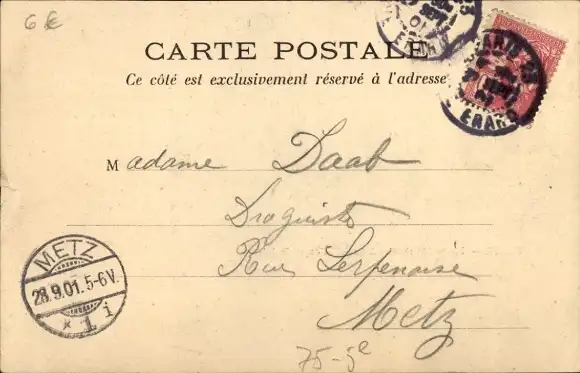 6 €
CARTE POSTALE
Ce côté est exclusivement réservé à l'adresse
PARIS
ERARD
Madame Daab
Droguiste
Rue Serpenoise
Metz
METZ
28.9.01.5-6V.
* 1 i
75-5e